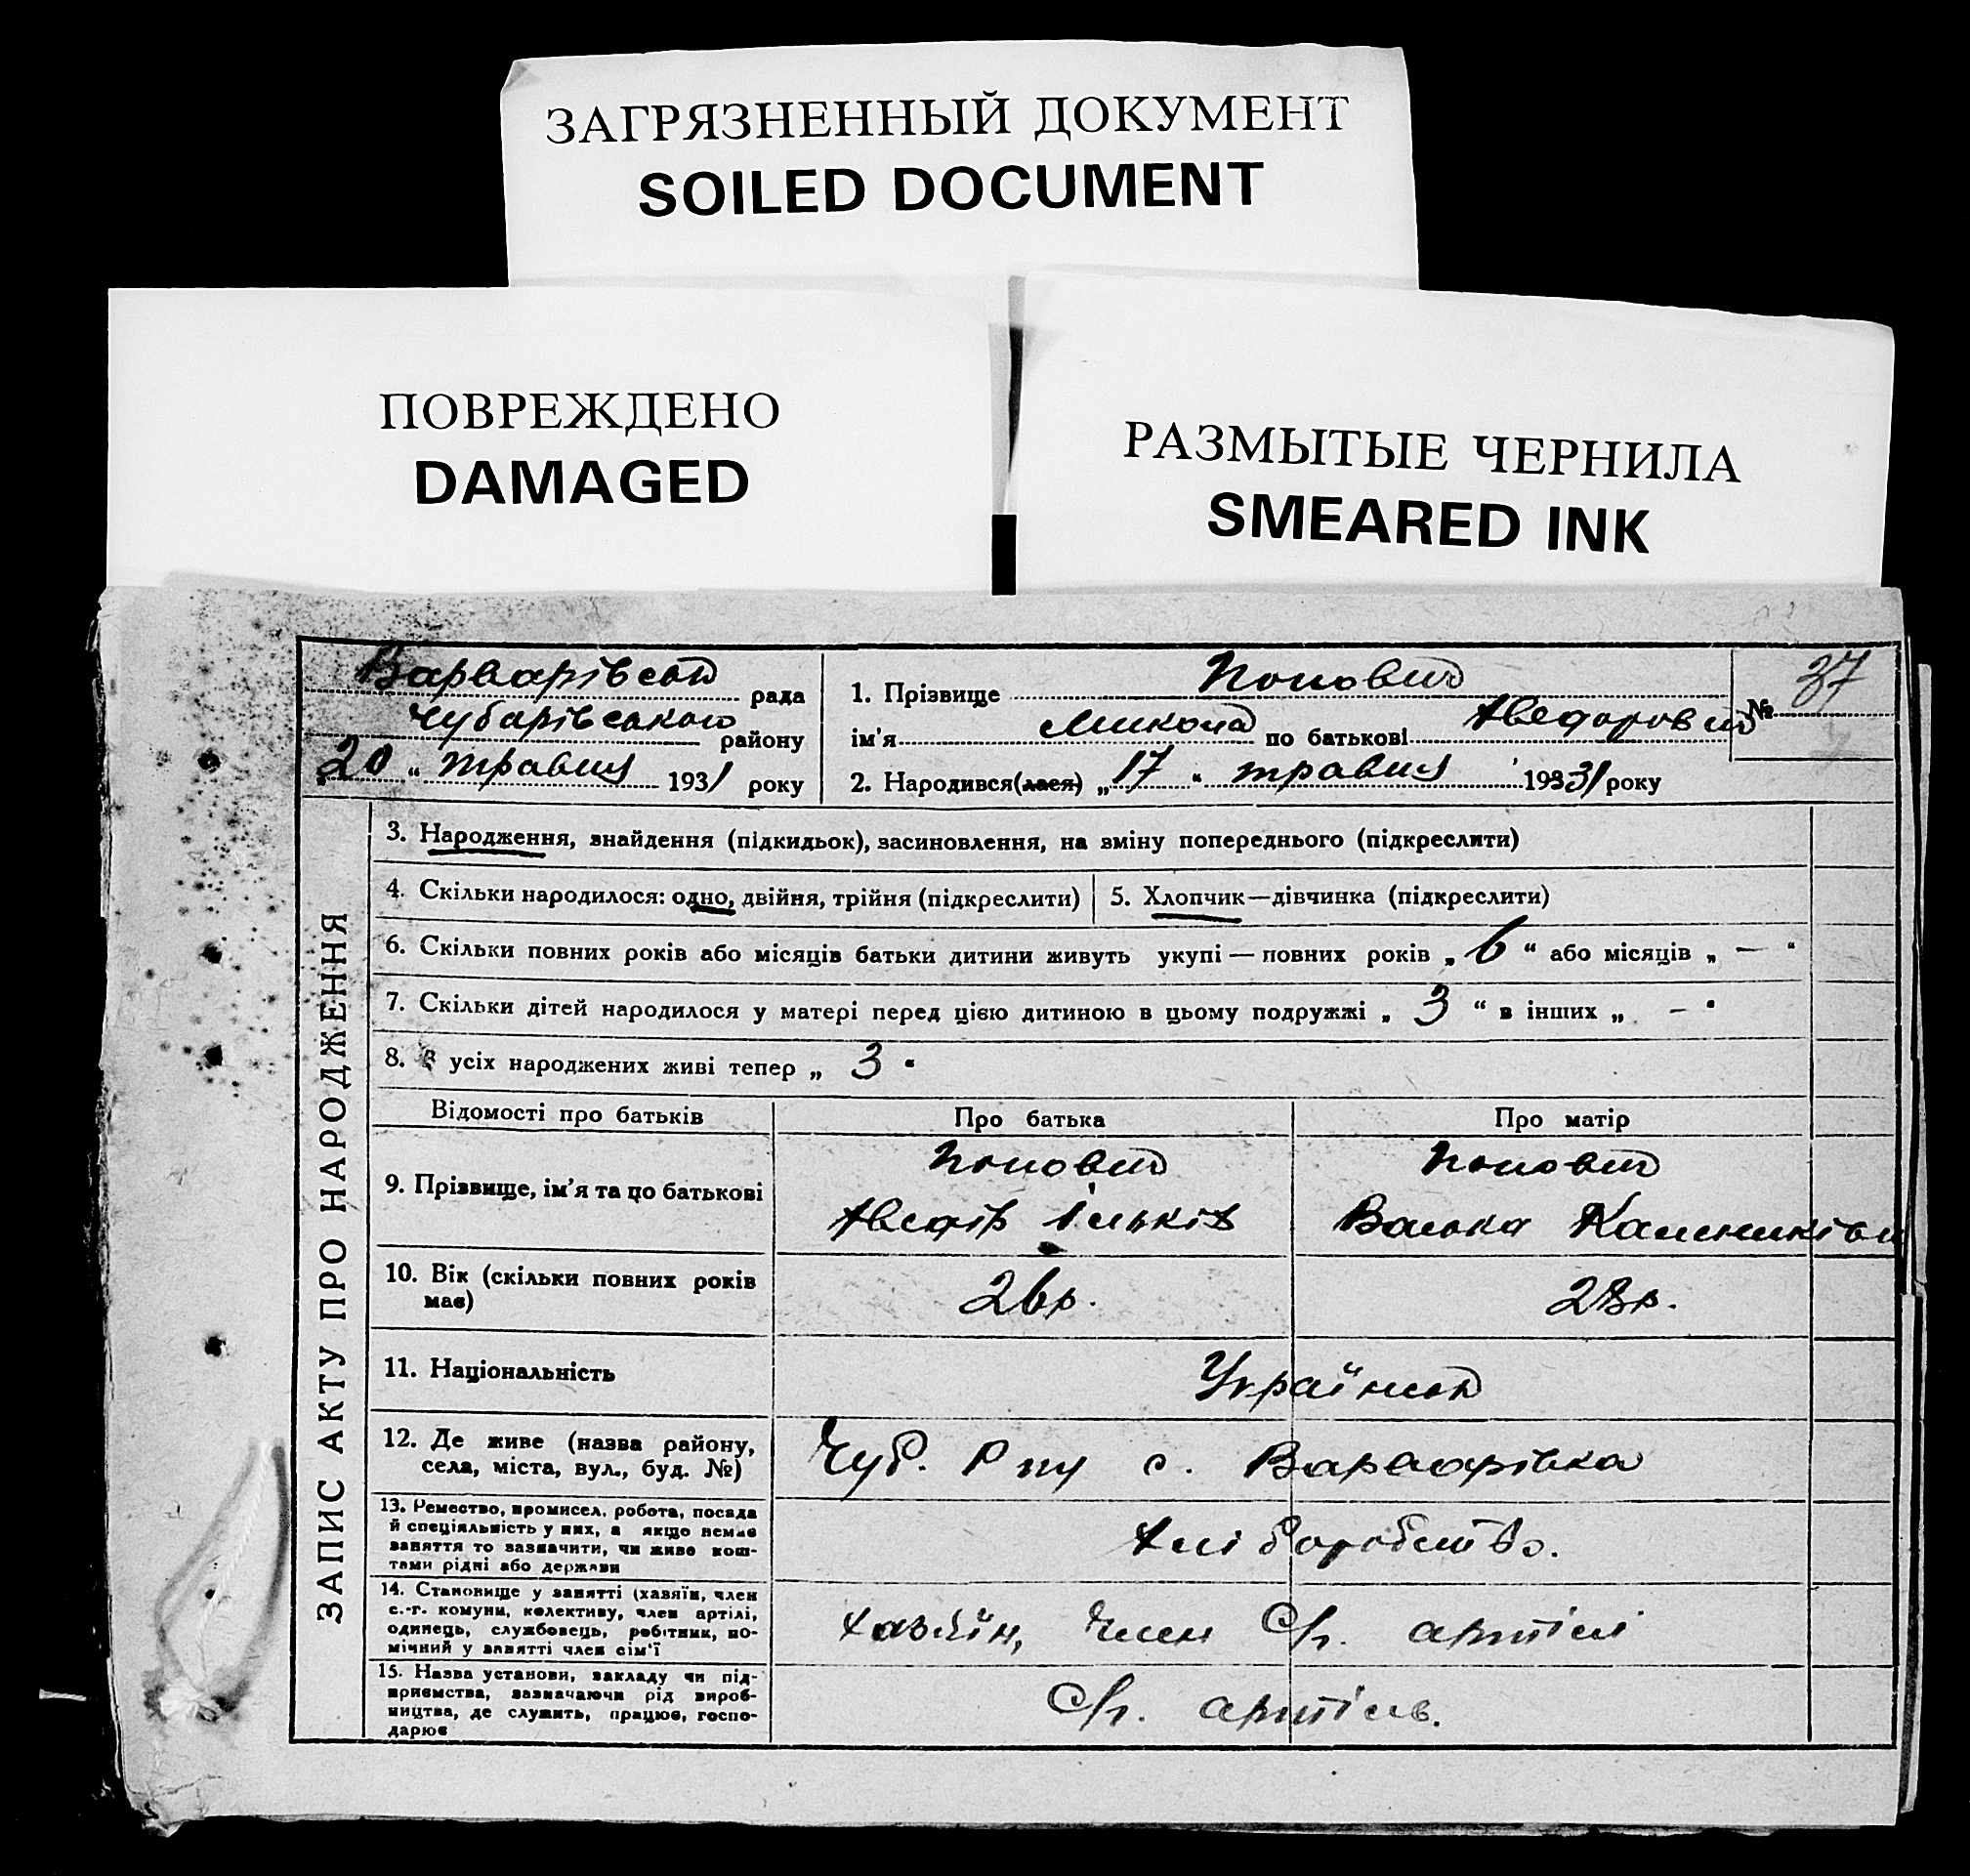 ЗАГРЯЗНЕННЫЙ ДОКУМЕНТ
SOILED DOCUMENT
ПОВРЕЖДЕНО
DAMAGED
РАЗМЫТЫЕ ЧЕРНИЛА
SMEARED INK
Варварівська рада
Чубарівського району
„20“ травня 1931 року
1. Прізвище Попович
ім'я Микола по батькові
2. Народився(лася) „17“ травня 1931 року
№ 37
ЗАПИС АКТУ ПРО НАРОДЖЕННЯ
3. Народження, знайдення (підкидьок), засиновлення, на зміну попереднього (підкреслити)
4. Скільки народилося: одно, двійня, трійня (підкреслити)
5. Хлопчик—дівчинка (підкреслити)
6. Скільки повних років або місяців батьки дитини живуть укупі — повних років „6“ або місяців „—“
7. Скільки дітей народилося у матері перед цією дитиною в цьому подружжі „3“ в інших „—“
8. З усіх народжених живі тепер „3“
Відомості про батьків
Про батька
Про матір
9. Прізвище, ім'я та по батькові
Попович
Попович
10. Вік (скільки повних років
має)
26 р.
28 р.
11. Національність
12. Де живе (назва району,
села, міста, вул., буд. №)
Чуб. Р ну с. Варварівка
13. Ремество, промисел, робота, посада
й спеціяльність у них, а якщо немає
заняття то зазначити, чи живе кош-
тами рідні або держави
Хліборобство.
14. Становище у занятті (хазяїн, член
с.-г. комуни, колективу, член артілі,
одинець, службовець, робітник, по-
мічний у занятті член сім'ї
хазяїн, член С/г. артілі
15. Назва установи, закладу чи під-
приємства, зазначаючи рід вироб-
ництва, де служить, працює, госпо-
дарює
С/г. артіль.